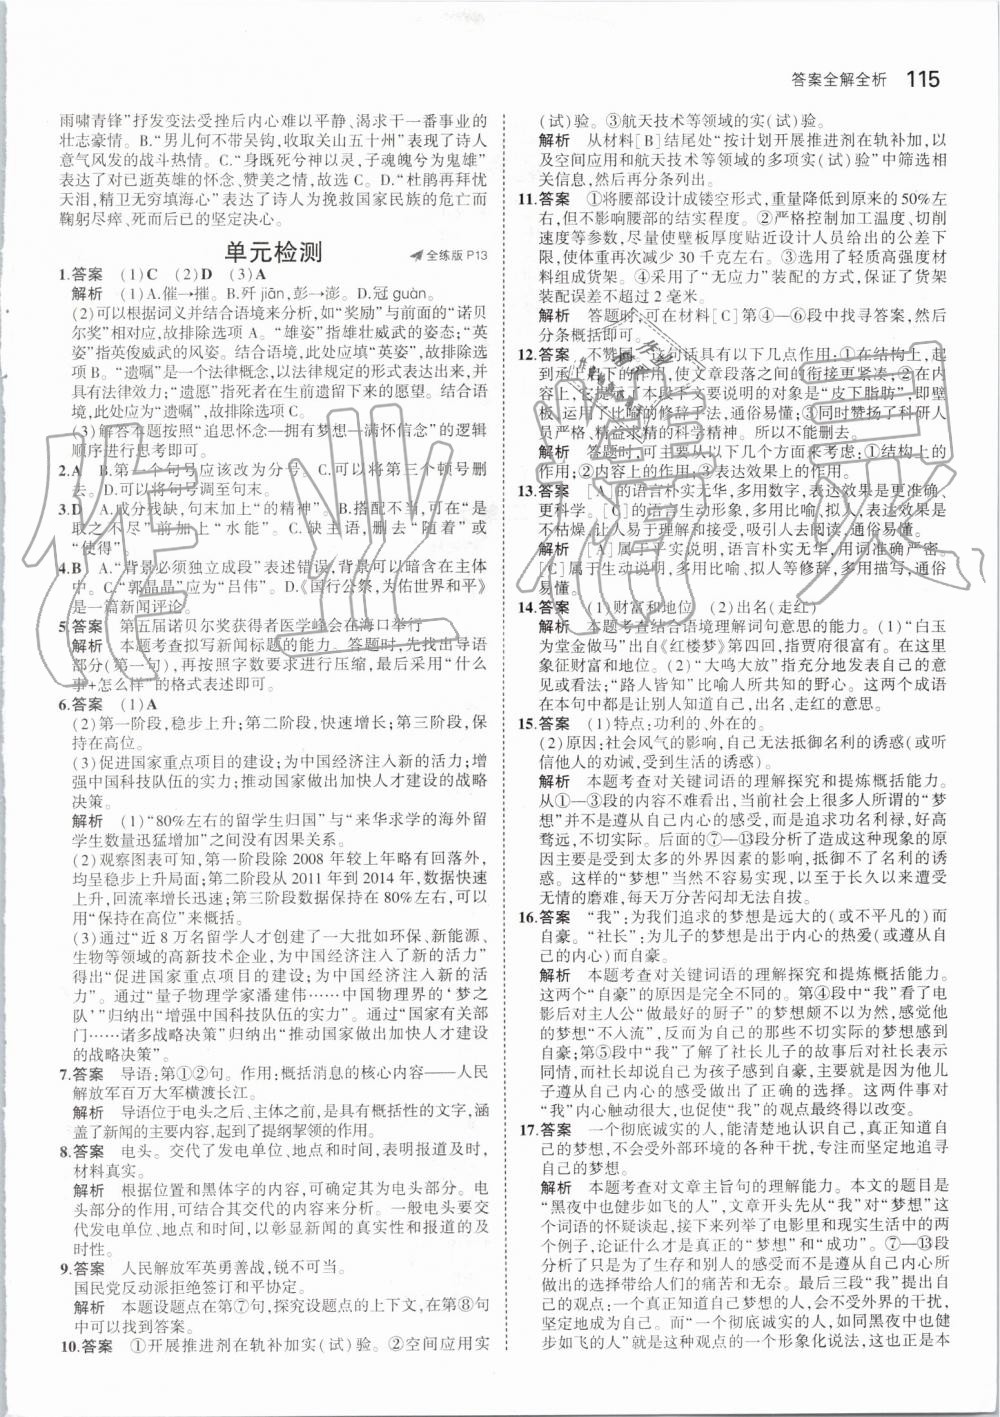 答案全解全析 115
雨啸青锋”抒发变法受挫后内心难以平静、渴求干一番事业的
壮志豪情。B.“男儿何不带吴钩,收取关山五十州”表现了诗人
意气风发的战斗热情。C.“身既死兮神以灵,子魂魄兮为鬼雄”
表达了对已逝英雄的怀念、赞美之情,故选C。D.“杜鹃再拜忧
天泪,精卫无穷填海心”表达了诗人为挽救国家民族的危亡而
鞠躬尽瘁、死而后已的坚定决心。
单元检测
全练版 P13
1.答案 (1)C (2)D (3)A
解析 (1)A.催→摧。B.歼 jiān,彭→澎。D.冠 guàn。
(2)可以根据词义并结合语境来分析,如“奖励”与前面的“诺贝
尔奖”相对应,故排除选项 A。“雄姿”指雄壮威武的姿态;“英
姿”指英俊威武的风姿。结合语境,此处应为“英姿”,故排除选
项 B。“遗嘱”是一个法律概念,以法律规定的形式表达出来,并
具有法律效力;“遗愿”指死者在生前遗留下来的愿望。结合语
境,此处应为“遗嘱”,故排除选项 C。
(3)解答本题按照“追思怀念—拥有梦想—满怀信念”的逻辑
顺序进行思考即可。
2.A B.第一个句号应该改为分号。C.可以将第三个顿号删
去。D.可以将句号调至句末。
3.D A.成分残缺,句末加上“的精神”。B.搭配不当,可在“是
取之不尽”前加上“水能”。C.缺主语,删去“随着”或
“使得”。
4.B A.“背景必须独立成段”表述错误,背景可以暗含在主体
中。C.“郭晶晶”应为“吕伟”。D.《国行公祭,为佑世界和平》
是一篇新闻评论。
5.答案 第五届诺贝尔奖获得者医学峰会在海口举行
解析 本题考查拟写新闻标题的能力。答题时,先找出导语
部分(第一句),再按照字数要求进行压缩,最后采用“什么
事+怎么样”的格式表述即可。
6.答案 (1)A
(2)第一阶段,稳步上升;第二阶段,快速增长;第三阶段,保
持在高位。
(3)促进国家重点项目的建设;为中国经济注入新的活力;增
强中国科技队伍的实力;推动国家做出加快人才建设的战略
决策。
解析 (1)“80%左右的留学生归国”与“来华求学的海外留
学生数量迅猛增加”之间没有因果关系。
(2)观察图表可知,第一阶段除 2008 年较上年略有回落外,
均呈稳步上升局面;第二阶段从 2011 年到 2014 年,数据快速
上升,回流率增长明显;第三阶段数据保持在 80%左右,可以
用“保持在高位”来概括。
(3)通过“近 8 万名留学人才创建了一大批如环保、新能源、
生物等领域的高新技术企业,为中国经济注入了新的活力”
得出“促进国家重点项目的建设;为中国经济注入新的活
力”。通过“量子物理学家潘建伟……中国物理界的‘梦之
队’”归纳出“增强中国科技队伍的实力”。通过“国家有关部
门……诸多战略决策”归纳出“推动国家做出加快人才建设
的战略决策”。
7.答案 导语:第①②句。作用:概括消息的核心内容——人民
解放军百万大军横渡长江。
解析 导语位于电头之后、主体之前,是具有概括性的文字,涵
盖了新闻的主要内容,起到了提纲挈领的作用。
8.答案 电头。交代了发电单位、地点和时间,表明报道及时,
材料真实。
解析 根据位置和黑体字的内容,可判断其为电头部分。电
头部分的作用,可结合其交代的内容分析。一般电头要交
代发电单位、地点和时间,以彰显新闻的真实性和报道的及
时性。
9.答案 人民解放军英勇善战,锐不可当。
国民党反动派拒绝签订和平协定。
解析 本题设题点在第⑦句,探究设题点的上下文,在第⑧句
中可以找到答案。
10.答案 ①开展推进剂在轨补加实(试)验。②空间应用实
(试)验。③航天技术等领域的实(试)验。
解析 从材料[B]结尾处“按计划开展推进剂在轨补加,以
及空间应用和航天技术等领域的多项实(试)验”中筛选相
关信息,然后再分条列出。
11.答案 ①将腰部设计成镂空形式,重量降低到原来的 50%左
右,但不影响腰部的结实程度。②严格控制加工温度、切削
速度等参数,尽量使壁板厚度贴近设计人员给出的公差下
限,使货架整体再次减少 30 千克左右。③选用了轻质高强度材
料组成货架。④采用了“无应力”装配的方式,保证了货架
装配误差不超过 2 毫米。
解析 答题时,可在材料[C]第④—⑥段中寻找答案,然后
分条概括即可。
12.答案 不赞同。该句话具有以下几点作用:①在结构上,起
到承上启下的作用,使文章段落之间的衔接更紧凑;②在内
容上,指明了本段下文要说明的对象是“皮下脂肪”,即壁
板,运用了比喻的修辞手法,通俗易懂;③同时赞扬了科研人
员严格、精益求精的科学精神。所以不能删去。
解析 答题时,可主要从以下几个方面来考虑:①结构上的
作用;②内容上的作用;③表达效果上的作用。
13.答案 [A]的语言朴实无华,多用数字,表达效果是更准确、
更科学。[C]的语言生动形象,多用比喻、拟人,表达效果是
不枯燥,让人易于理解和接受,吸引人去阅读,通俗易懂。
解析 [A]属于平实说明,语言朴实无华,用词准确严密。
[C]属于生动说明,多用比喻、拟人等修辞,生动形象,通俗
易懂。
14.答案 (1)财富和地位 (2)出名(走红)
解析 本题考查结合语境理解词句意思的能力。(1)“白玉
为堂金做马”出自《红楼梦》第四回,指贾府很富有。在这里
象征财富和地位。(2)“大鸣大放”指充分地发表自己的意
见或看法;“路人皆知”比喻人所共知的野心。这两个成语
在本句中都是让别人知道自己,出名、走红的意思。
15.答案 (1)特点:功利的、外在的。
(2)原因:社会风气的影响,自己无法抵御名利的诱惑(或听
信他人的劝诫,受到生活的诱惑)。
解析 本题考查对关键词语的理解探究和提炼概括能力。
从①—③段的内容不难看出,当前社会上很多人所谓的“梦
想”并不是遵从自己内心的感受,而是追求功名利禄,好高
骛远,不切实际。后面的⑦—⑬段分析了造成这种现象的原
因主要是受到太多的外界因素的影响,抵御不了名利的诱
惑。这样的“梦想”当然不容易实现,以至于长久以来遭受
无情的磨难,每天万分苦闷却无法自拔。
16.答案 “我”:为我们追求的梦想是远大的(或不平凡的)而
自豪。“社长”:为儿子的梦想是出于内心的热爱(或遵从自
己的内心)而自豪。
解析 本题考查对关键词语的理解探究和提炼概括能力。
这两个“自豪”的原因是完全不同的。第④段中“我”看了电
影后对主人公“做最好的厨子”的梦想颇不以为然,感觉他
的梦想“不入流”,反而为自己的那些不切实际的梦想感到
自豪;第⑤段中“我”了解了社长儿子的故事后对社长表示
同情,而社长却为自己的孩子感到自豪,主要就是因为他儿
子遵从自己内心的感受做出了正确的选择。这两件事对
“我”内心触动很大,也促使“我”的观点最终得以改变。
17.答案 一个彻底诚实的人,能清楚地认识自己,真实面对自
己的梦想,不会受外部环境的各种干扰,专注而坚定地追寻
自己的梦想。
解析 本题考查对文章主旨句的理解能力。本文的题目是
“黑夜中也健步如飞的人”,文章开头先从“我”对“梦想”这
个词语的怀疑谈起,接下来列举了电影里和现实生活中的两
个例子,论证什么才是真正的“梦想”和“成功”。⑦—⑬段
分析了只是为了生存和别人的感受而不遵从自己的内心所
做出的选择带给人们的痛苦和无奈。最后三段“我”提出了
自己的观点:一个彻底诚实的人,是从不受外界的干扰,
坚定地成为自己的人。这样的人生必定是精彩的,也如同黑夜中也
健步如飞的人,就是这种观点的一个形象化说法,这也正是本